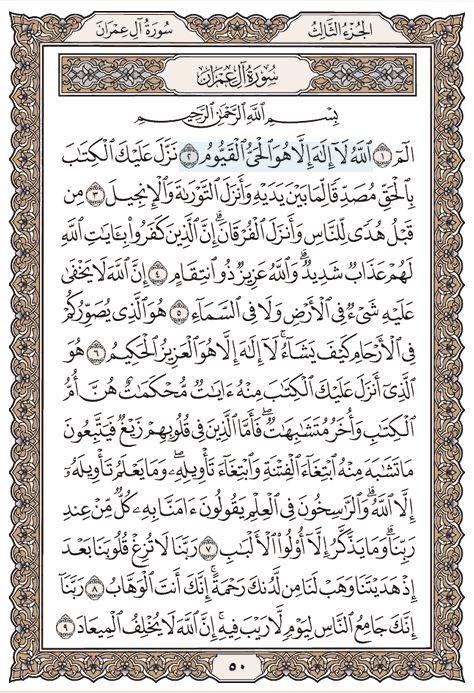 سُورَةُ آلِ عِمْرَانَ الجُزْءُ الثَّالِثُ
سُورَةُ آلِ عِمْرَانَ
بِسْمِ ٱللَّهِ ٱلرَّحْمَٰنِ ٱلرَّحِيمِ
الٓمٓ ١ ٱللَّهُ لَآ إِلَٰهَ إِلَّا هُوَ ٱلْحَىُّ ٱلْقَيُّومُ ٢ نَزَّلَ عَلَيْكَ ٱلْكِتَٰبَ
بِٱلْحَقِّ مُصَدِّقًا لِّمَا بَيْنَ يَدَيْهِ وَأَنزَلَ ٱلتَّوْرَىٰةَ وَٱلْإِنجِيلَ ٣ مِن
قَبْلُ هُدًى لِّلنَّاسِ وَأَنزَلَ ٱلْفُرْقَانَ ۗ إِنَّ ٱلَّذِينَ كَفَرُوا۟ بِـَٔايَٰتِ ٱللَّهِ
لَهُمْ عَذَابٌ شَدِيدٌ ۗ وَٱللَّهُ عَزِيزٌ ذُو ٱنتِقَامٍ ٤ إِنَّ ٱللَّهَ لَا يَخْفَىٰ
عَلَيْهِ شَىْءٌ فِى ٱلْأَرْضِ وَلَا فِى ٱلسَّمَآءِ ٥ هُوَ ٱلَّذِى يُصَوِّرُكُمْ
فِى ٱلْأَرْحَامِ كَيْفَ يَشَآءُ ۚ لَآ إِلَٰهَ إِلَّا هُوَ ٱلْعَزِيزُ ٱلْحَكِيمُ ٦ هُوَ
ٱلَّذِىٓ أَنزَلَ عَلَيْكَ ٱلْكِتَٰبَ مِنْهُ ءَايَٰتٌ مُّحْكَمَٰتٌ هُنَّ أُمُّ
ٱلْكِتَٰبِ وَأُخَرُ مُتَشَٰبِهَٰتٌ ۖ فَأَمَّا ٱلَّذِينَ فِى قُلُوبِهِمْ زَيْغٌ فَيَتَّبِعُونَ
مَا تَشَٰبَهَ مِنْهُ ٱبْتِغَآءَ ٱلْفِتْنَةِ وَٱبْتِغَآءَ تَأْوِيلِهِۦ ۗ وَمَا يَعْلَمُ تَأْوِيلَهُۥٓ
إِلَّا ٱللَّهُ ۗ وَٱلرَّٰسِخُونَ فِى ٱلْعِلْمِ يَقُولُونَ ءَامَنَّا بِهِۦ كُلٌّ مِّنْ عِندِ
رَبِّنَا ۗ وَمَا يَذَّكَّرُ إِلَّآ أُو۟لُوا۟ ٱلْأَلْبَٰبِ ٧ رَبَّنَا لَا تُزِغْ قُلُوبَنَا بَعْدَ
إِذْ هَدَيْتَنَا وَهَبْ لَنَا مِن لَّدُنكَ رَحْمَةً ۚ إِنَّكَ أَنتَ ٱلْوَهَّابُ ٨ رَبَّنَآ
إِنَّكَ جَامِعُ ٱلنَّاسِ لِيَوْمٍ لَّا رَيْبَ فِيهِ ۚ إِنَّ ٱللَّهَ لَا يُخْلِفُ ٱلْمِيعَادَ ٩
٥٠